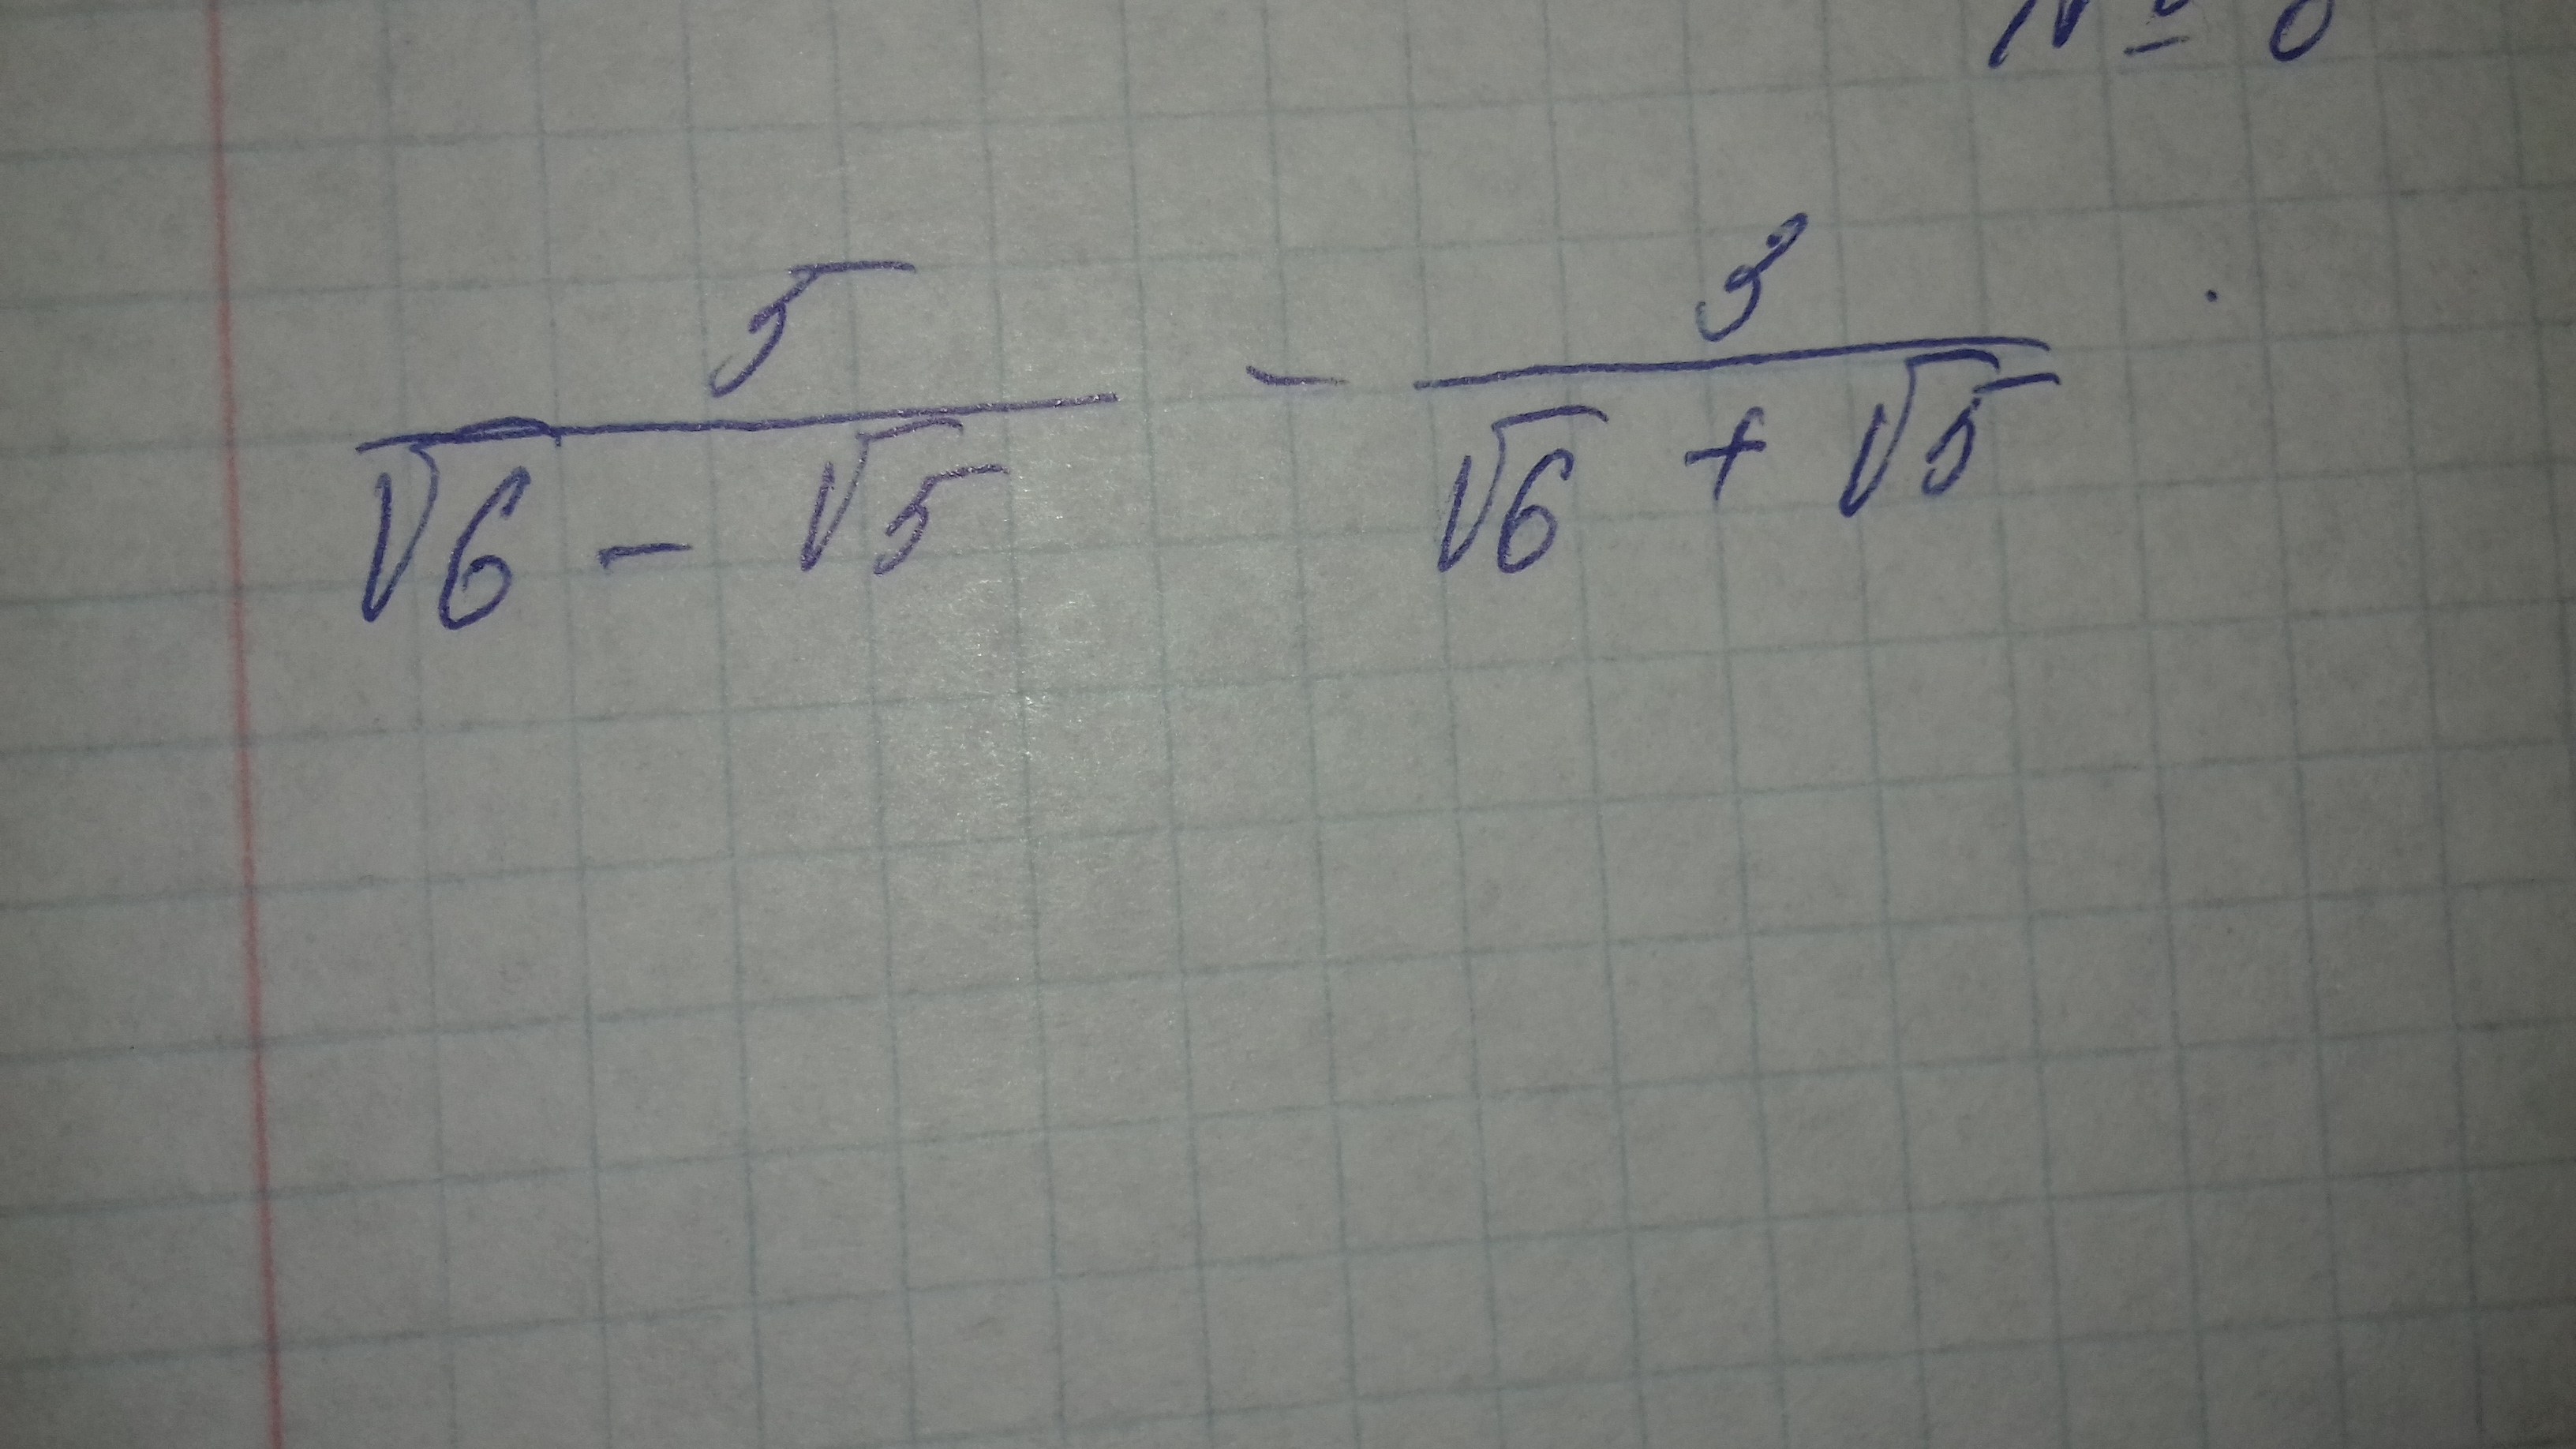 №
5/(√6 - √5) - 3/(√6 + √5)